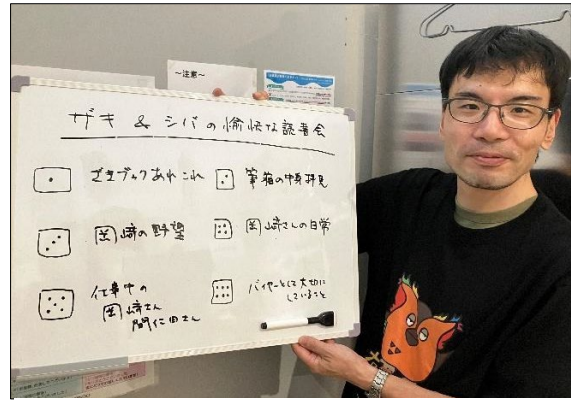 ～注意～
ザキ & シバの愉快な読書会
ざきブックあれこれ
筆箱の中身拝見
岡﨑の野望
岡﨑さんの日常
仕事中の
岡﨑さん
バイヤーとして大切に
していること